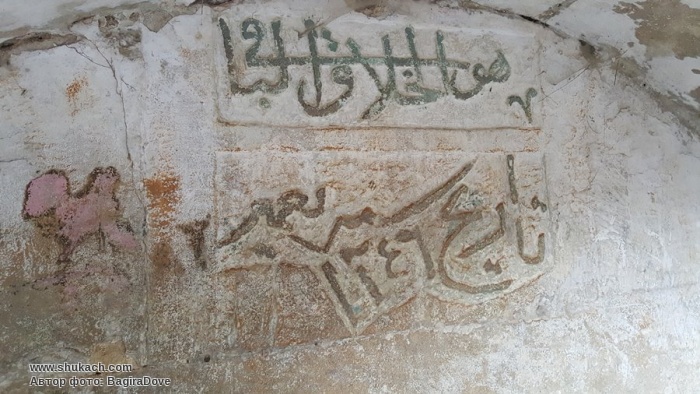 هو الخلاق الباقي
تاريخ سنه تعمير
١٢٤٦
www.shukach.com
Автор фото: BagiraDove